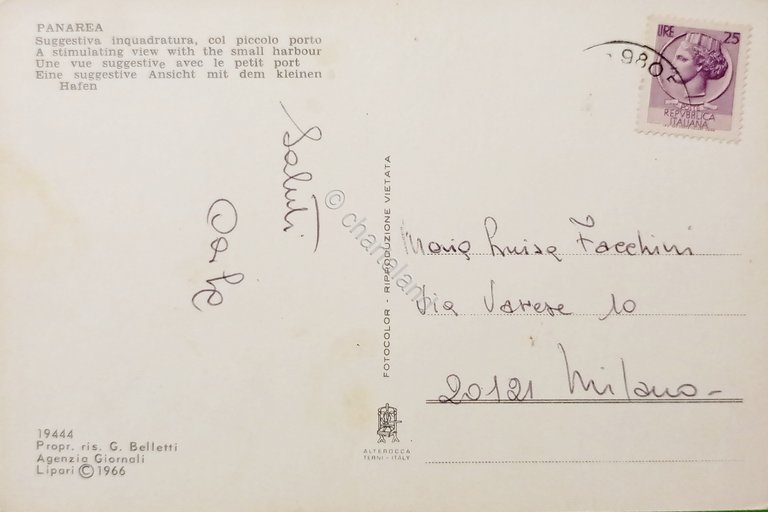 PANAREA
Suggestiva inquadratura, col piccolo porto
A stimulating view with the small harbour
Une vue suggestive avec le petit port
Eine suggestive Ansicht mit dem kleinen
Hafen
LIRE 25
POSTE
REPVBBLICA
ITALIANA
Saluti
FOTOCOLOR - RIPRODUZIONE VIETATA
Maria Luisa Facchini
Via Varese 10
20121 Milano -
19444
Propr. ris. G. Belletti
Agenzia Giornali
Lipari © 1966
ALTEROCCA
TERNI - ITALY